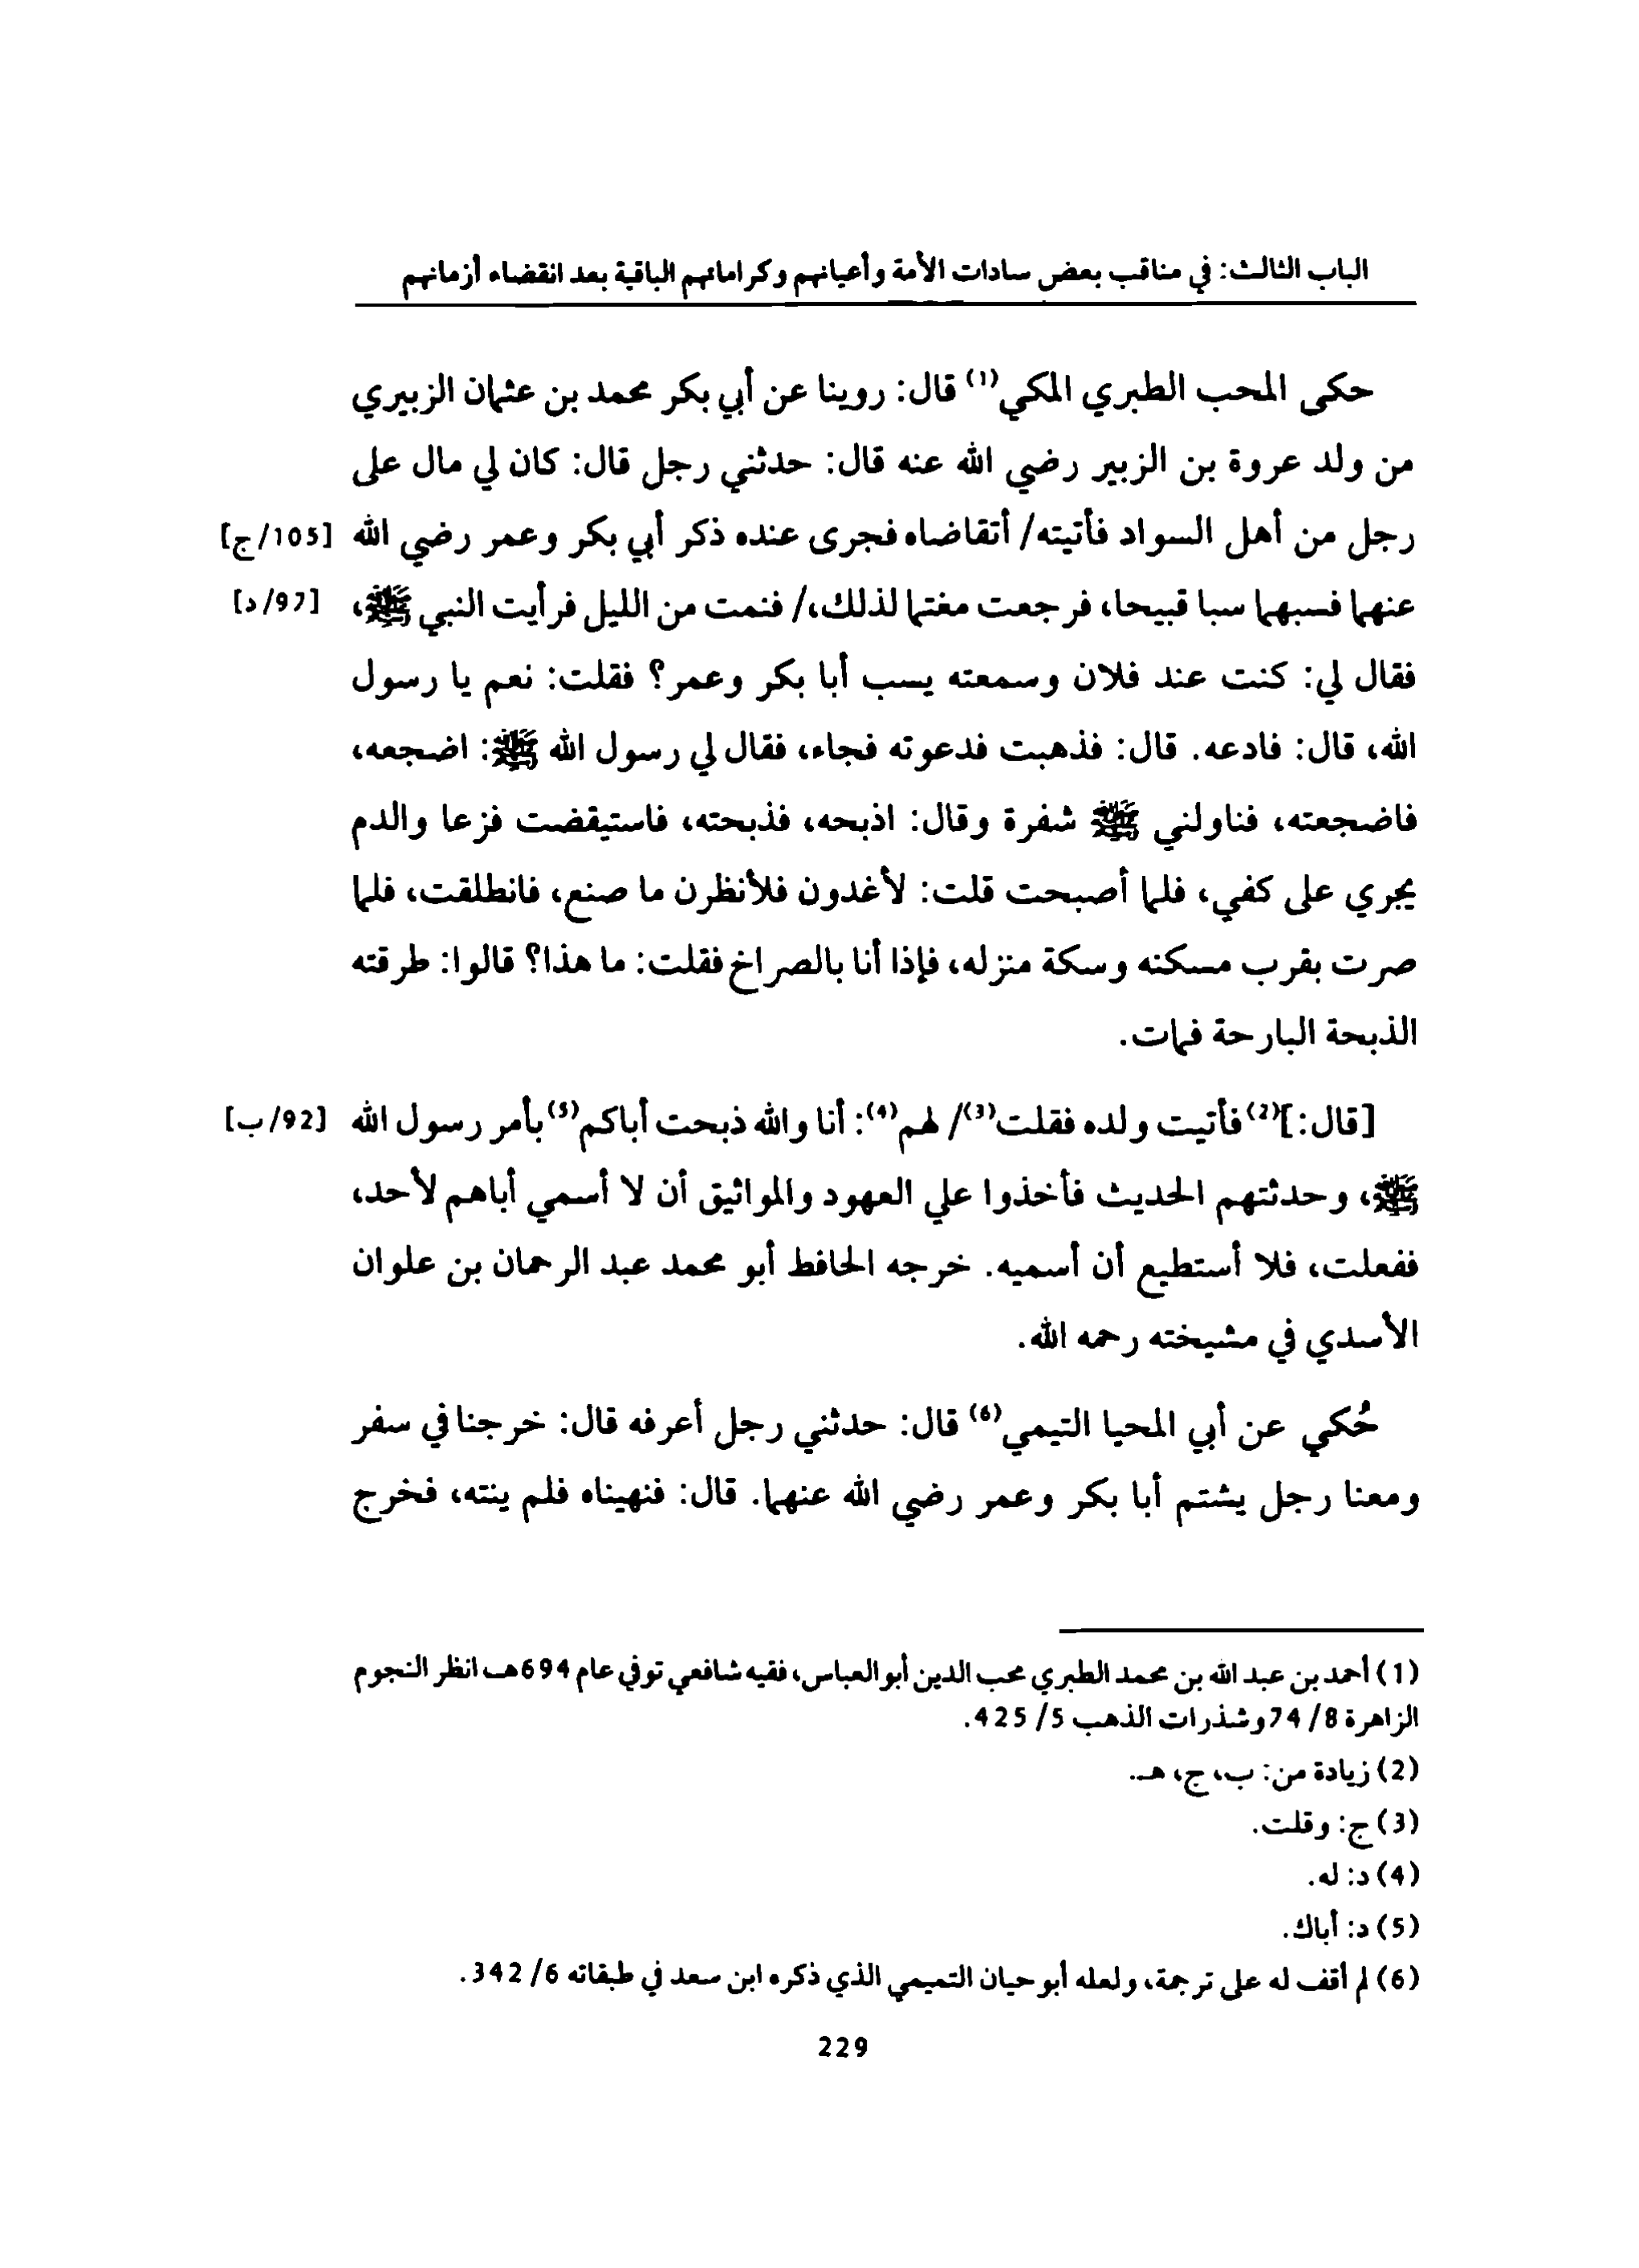 الباب الثالث: في مناقب بعض سادات الأمة وأعيانهم وكراماتهم الباقية بعد انقضاء أزمانهم
حكى المحب الطبري المكي(1) قال: روينا عن أبي بكر محمد بن عثمان الزبيري
من ولد عروة بن الزبير رضي الله عنه قال: حدثني رجل قال: كان لي مال على
رجل من أهل السواد فأتيته/ أتقاضاه فجرى عنده ذكر أبي بكر وعمر رضي الله [105/ج]
عنهما فسبهما سبا قبيحا، فرجعت مغتما لذلك،/ فنمت من الليل فرأيت النبي ﷺ، [97/د]
فقال لي: كنت عند فلان وسمعته يسب أبا بكر وعمر؟ فقلت: نعم يا رسول
الله، قال: فادعه. قال: فذهبت فدعوته فجاء، فقال لي رسول الله ﷺ: اضجعه،
فاضجعته، فناولني ﷺ شفرة وقال: اذبحه، فذبحته، فاستيقضت فزعا والدم
يجري على كفي، فلما أصبحت قلت: لأغدون فلأنظرن ما صنع، فانطلقت، فلما
صرت بقرب مسكنه وسكة منزله، فإذا أنا بالصراخ فقلت: ما هذا؟ قالوا: طرقته
الذبحة البارحة فمات.
[قال:](2) فأتيت ولده فقلت(3)/ لهم(4): أنا والله ذبحت أباكم(5) بأمر رسول الله [92/ب]
ﷺ، وحدثتهم الحديث فأخذوا علي العهود والمواثيق أن لا أسمي أباهم لأحد،
ففعلت، فلا أستطيع أن أسميه. خرجه الحافظ أبو محمد عبد الرحمان بن علوان
الأسدي في مشيخته رحمه الله.
حُكي عن أبي المحيا التيمي(6) قال: حدثني رجل أعرفه قال: خرجنا في سفر
ومعنا رجل يشتم أبا بكر وعمر رضي الله عنهما. قال: فنهيناه فلم ينته، فخرج
(1) أحمد بن عبد الله بن محمد الطبري محب الدين أبو العباس، فقيه شافعي توفي عام 694هـ انظر النجوم
الزاهرة 8/ 74 وشذرات الذهب 5/ 425.
(2) زيادة من: ب، ج، هـ.
(3) ج: وقلت.
(4) د: له.
(5) د: أباك.
(6) لم أقف له على ترجمة، ولعله أبو حيان التميمي الذي ذكره ابن سعد في طبقاته 6/ 342.
229